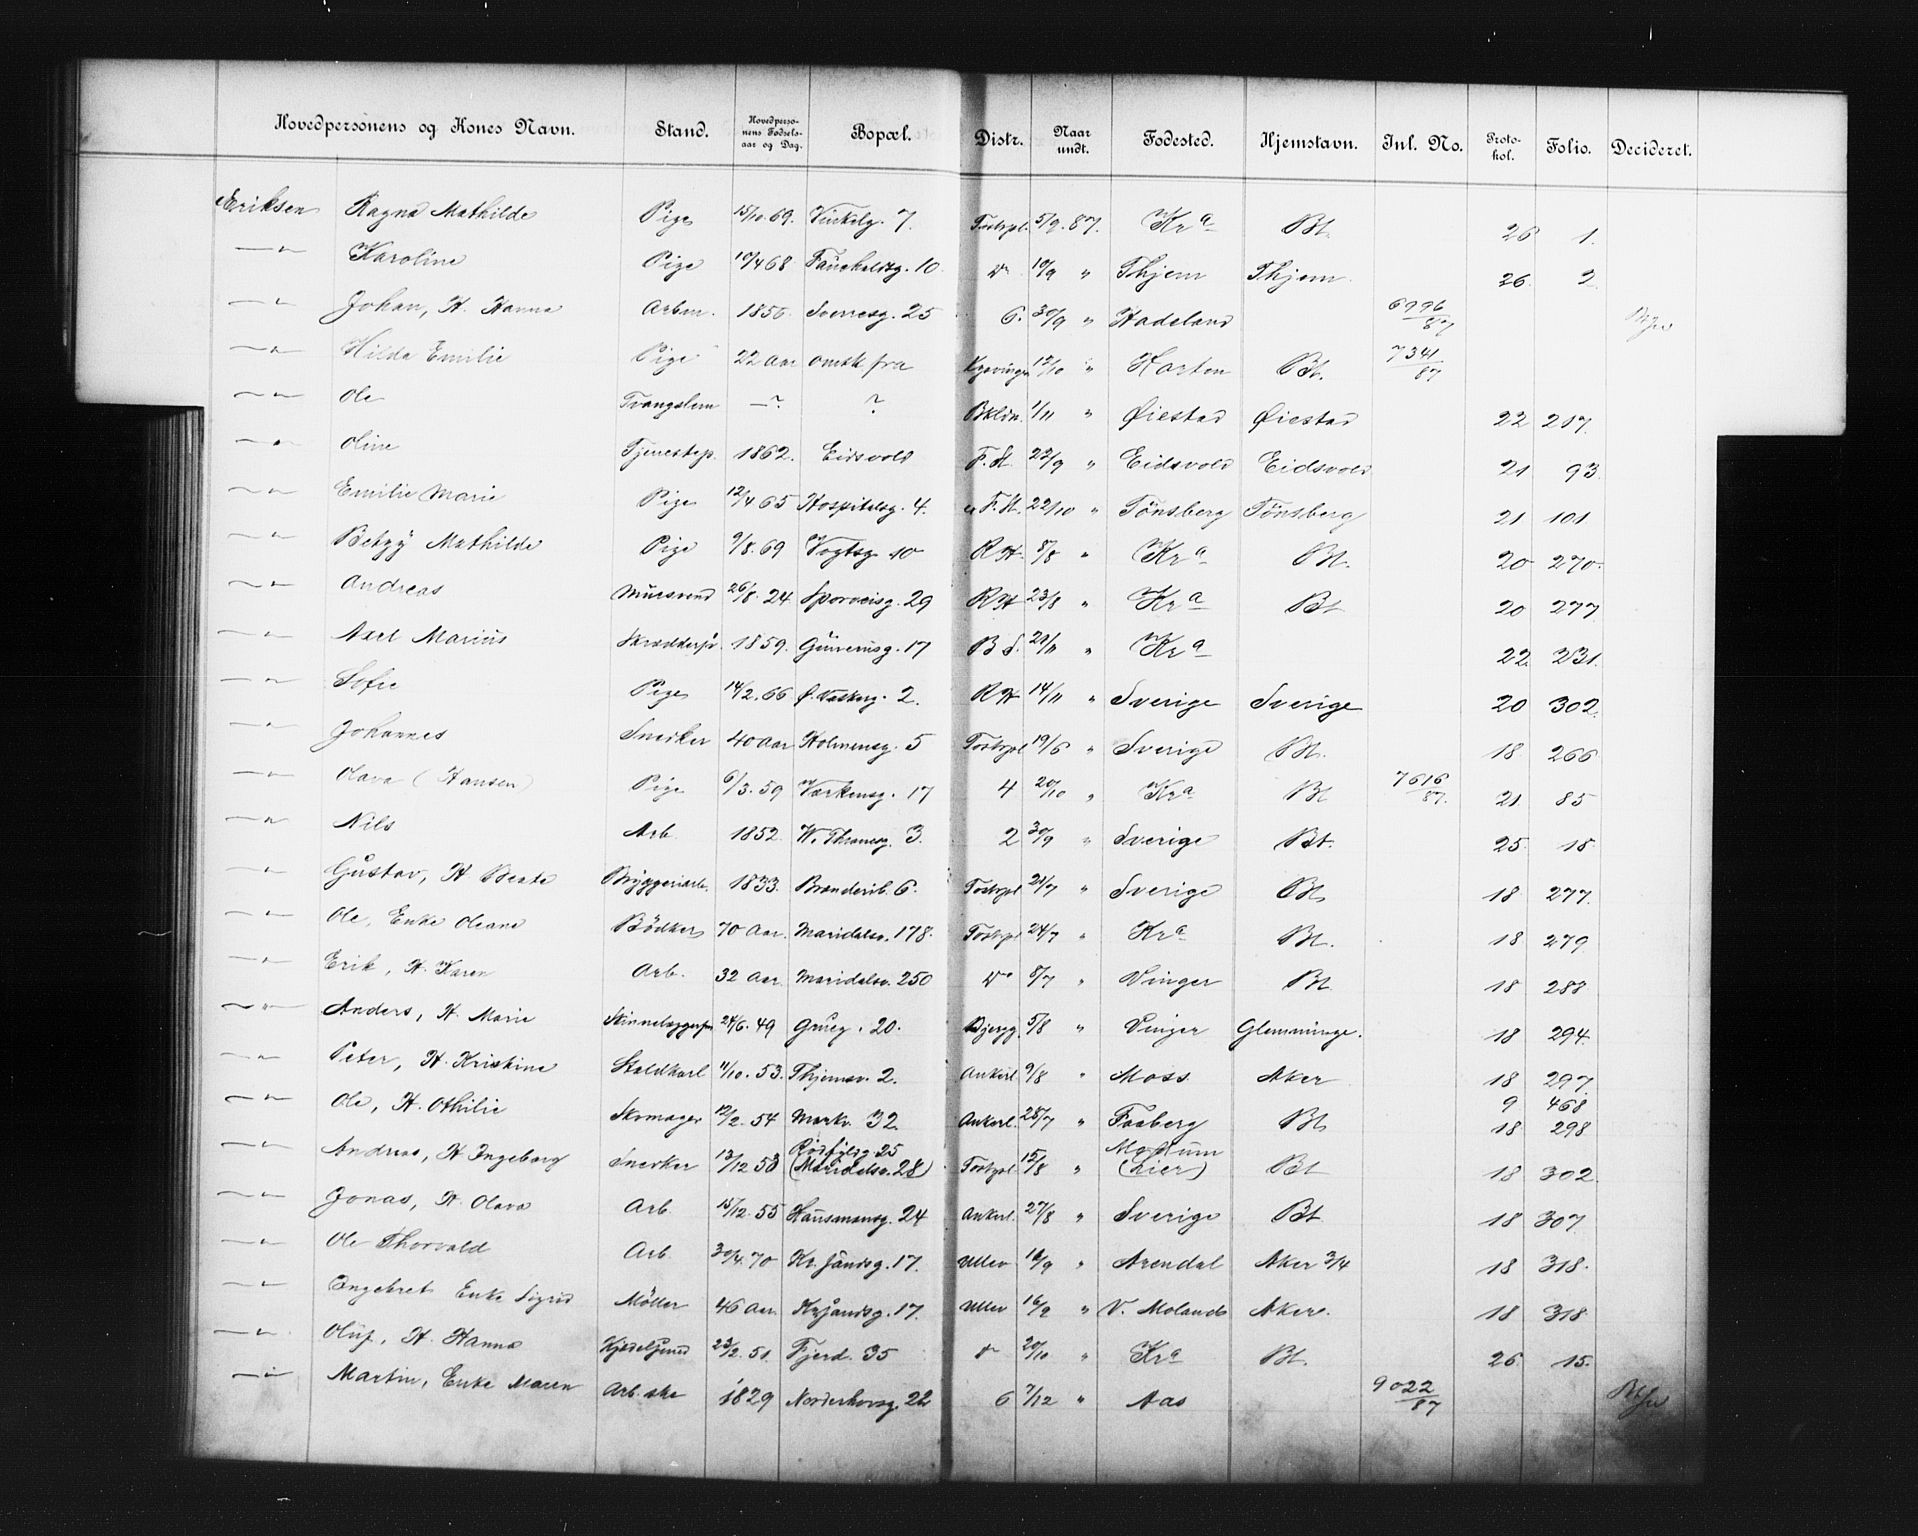 Hovedpersonens og Kones Navn. Stand. Hovedpersonens Fødselsaar og Dag. Bopæl. Distr. Naar undt. Fødested. Hjemstavn. Inl. No. Protokol. Folio. Decideret.
Eriksen Ragna Mathilde Pige 15/10.69. Vinkelg. 7. Tostrpl. 5/9.87. Kra Bt. 26 1.
—"— Karoline Pige 10/4 68 Fauchaldsg. 10 Do 10/9 " Thjem Thjem. 26. 2
—"— Johan, H. Hanna Arbm. 1856. Sverresg. 25 6. 30/9 " Hadeland 6996/87
—"— Hilda Emilie Pige 22 Aar omsk fra 12/10 " Horten Bt. 7341/87
—"— Ole Tvangslem —? ? Bkldn. 1/11 " Øiestad Øiestad 22 217.
—"— Oline Tjenestep. 1862. Eidsvold F.St. 22/9 " Eidsvold Eidsvold 21 93.
—"— Emilie Marie Pige 12/4 65 Hospitalsg. 4. " F.St. 22/10 " Tönsberg Tönsberg 21 101
—"— Betzy Mathilde Pige 9/8.69 Vogtsg. 10 RH. 8/8 " Kra Bt. 20 270.
—"— Andreas Mursvend 26/8.24. Sporveisg. 29 RH 23/8 " Kra Bt 20 277
—"— Axel Marius 1859. 17 B.S. 21/11 " Kra 22 231.
—"— Sofie Pige 14/2.66 Ø. Vaskerg. 2. RH 14/11 " Sverige Sverige 20 302.
—"— Johannes Snedker 40 Aar Holmensg. 5 Tostrpl 19/6 " Sverige Bt. 18 266
—"— Olava (Hansen) Pige 6/3.59 Værkensg. 17 4 20/10 " Kra Bt 7616/87. 21 85
—"— Nils Arb. 1852. W. Thranesg. 3. 2 30/9 " Sverige Bt. 25. 18
—"— Gustav, H Beate Bryggeriarb. 1833. Brenderib. 6. Tostrpl 21/7 " Sverige Bt. 18 277.
—"— Ole, Enke Oleane Bödker 70 Aar. Maridalsv. 178. Tostrpl 24/7 " Kra Bt. 18 279
—"— Erik, H. Karen Arb. 32 Aar Maridalsv. 250 Do 8/7 " Vinger Bt 18 288
—"— Anders, H. Marie 24/6.49 Grueg. 20. Bjergg. 5/8 " Vinger Glemminge. 18 294.
—"— Peter, H. Kristine Staldkarl 11/10.53. Thjemsv. 2. Ankerl. 9/8 " Moss Aker 18 297.
9 468
—"— Ole, H. Othilie Skomager 12/2.54 Markv. 32 Ankerl. 28/7 " Faaberg Bt 18 298
—"— Andreas, H Ingeborg Snedker 13/12 53 Rødfyldg. 25 (Maridalsv. 28) Tostrpl 15/8 " Modum (Lier) Bt 18 302.
—"— Jonas, H. Olava Arb 15/12.55 Hausmansg. 24 Ankerl. 27/8 " Sverige Bt 18 307
—"— Ole Thorvald Arb. 30/4.70 Kr.sandsg. 17. Ullev 16/9 " Arendal Aker 3/4 18 318.
—"— Engebret Enke Sigrid Möller 46 Aar. Kr.sandsg. 17. Ullev 16/9 " V. Molands Aker. 18 318
—"— Oluf, H. Hanna Kjedelsmed 23/2.51. Fjerd. 35 Do 20/10 " Kra Bt. 26. 15.
—"— Martin, Enke Maren Arb.ske 1829 Norderhovsg. 22 6 7/12 " Aas 9022/87